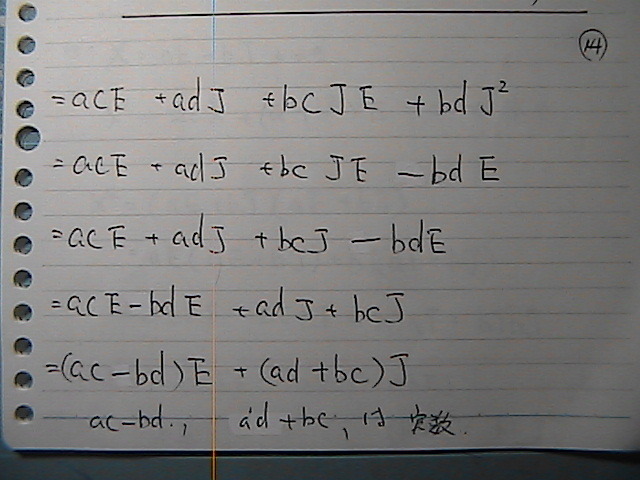 ⑭
=acE +adJ +bcJE +bdJ²
=acE +adJ +bcJE −bdE
=acE +adJ +bcJ −bdE
=acE−bdE +adJ+bcJ
=(ac−bd)E +(ad+bc)J
ac−bd., ad+bc, は 実数.